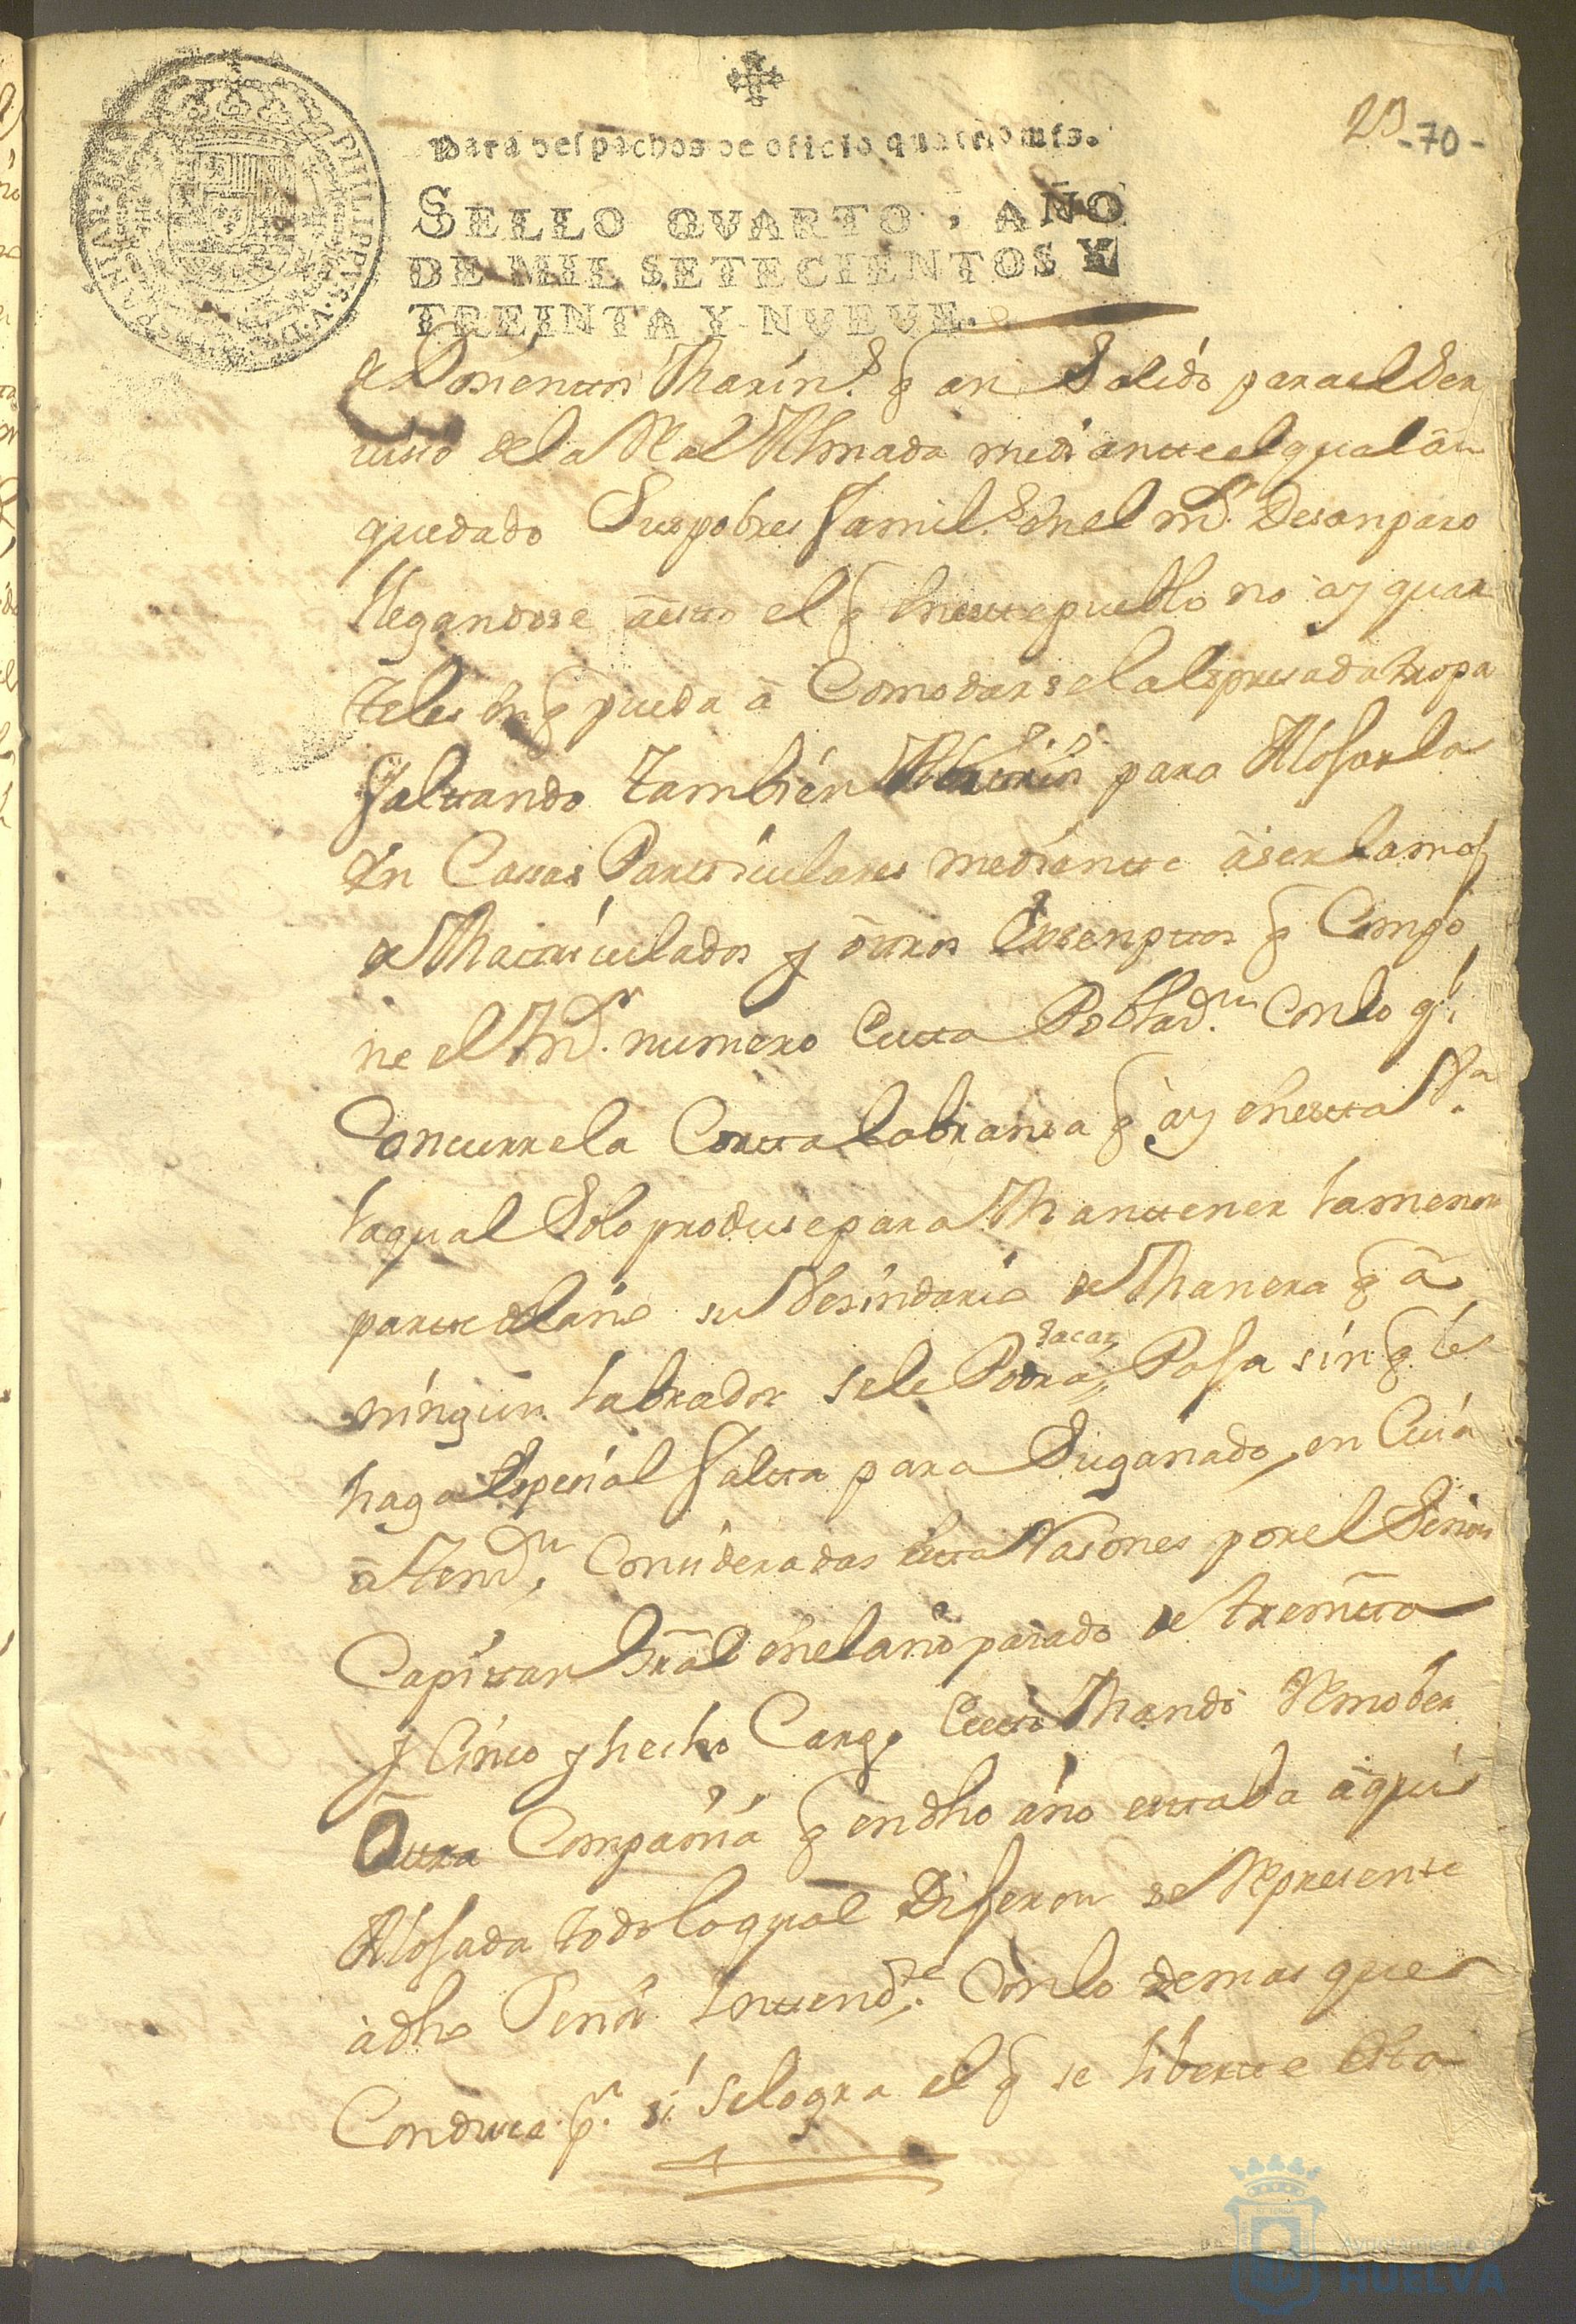 23
-70-
Para despachos de oficio quatro mrs.
SELLO QVARTO, AÑO
DE MIL SETECIENTOS Y
TREINTA Y NVEVE.
PHILIPPVS V D G
Dosientos Marin.s q an Salido para el Ser
uisio de la Real Armada mediante el qual an
quedado Sus pobres famil.s en el m.r Desanparo
llegandose a esto el q en este pueblo no ay quar
teles en q pueda acomodarse la espresada tropa
faltando tambien para Alojarla
En Casas Particulares mediante a ser la may
de Matriculados y otros Esenptos q Compo
ne el m.r numero Esta Poblas.n Con lo q.l
Concurre la Corta labransa q ay en esta V.a
la qual Solo produse para Mantener la menor
parte del año su Vesindario de Manera q a
ningun labrador se le Podra sacar Paja sin q le
haga Espesial falta para Su ganado, en Cuia
atens.n Consideradas estas Rasones por el Señor
Capitan Gral en el año pasado de treinta
y Cinco y hecho Cargo Esto Mando Remober
Otra Compañia q en dho año estaba aqui
Alojada todo lo qual Dijeron se Represente
a dho Señor Intend.te Con lo demas que
Condusca p.a si se logra el q se liberte Esta
Ayuntamiento de
HUELVA